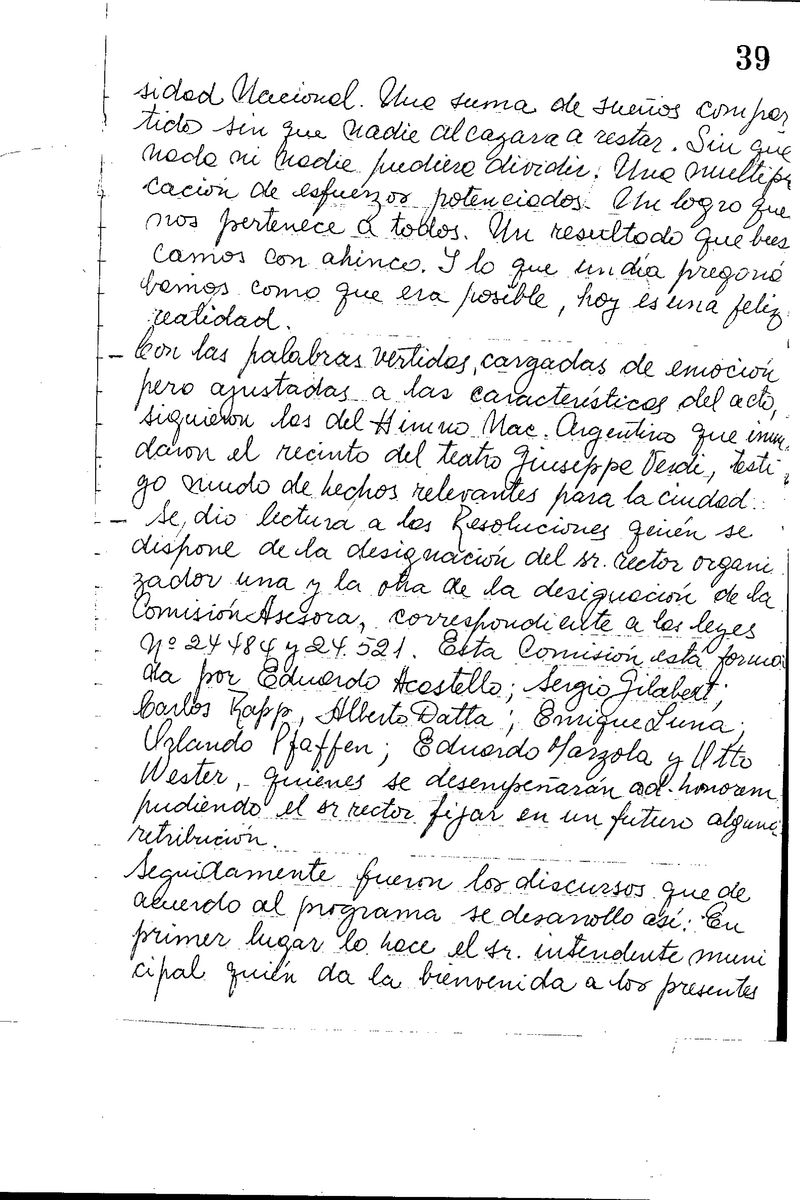 39
sidad Nacional. Una suma de sueños compar
tidos sin que nadie alcazara a restar. Sin que
nada ni nadie pudiera dividir. Una multipli
cación de esfuerzos potenciados. Un logro que
nos pertenece a todos. Un resultado que bus
camos con ahinco. Y lo que un día pregoná
bamos como que era posible, hoy es una feliz
realidad.
– Con las palabras vertidas, cargadas de emoción
pero ajustadas a las características del acto,
siguieron las del Himno Nac. Argentino que inun
daron el recinto del teatro Giuseppe Verdi, testi
go mudo de hechos relevantes para la ciudad.
– Se dio lectura a las Resoluciones quién se
dispone de la designación del sr. rector organi
zador una y la otra de la designación de la
Comisión Asesora, correspondiente a las leyes
Nº 24484 y 24.521. Esta Comisión está forma
da por Eduardo Acastello; Sergio Gilabert;
Carlos Rapp, Alberto Datta; Enrique Luna;
Orlando Pfaffen; Eduardo Marzola y Otto
Wester, quienes se desempeñarán ad-honorem
pudiendo el sr rector fijar en un futuro alguna
retribución.
Seguidamente fueron los discursos que de
acuerdo al programa se desarrollo así: En
primer lugar lo hace el sr. intendente muni
cipal quién da la bienvenida a los presentes